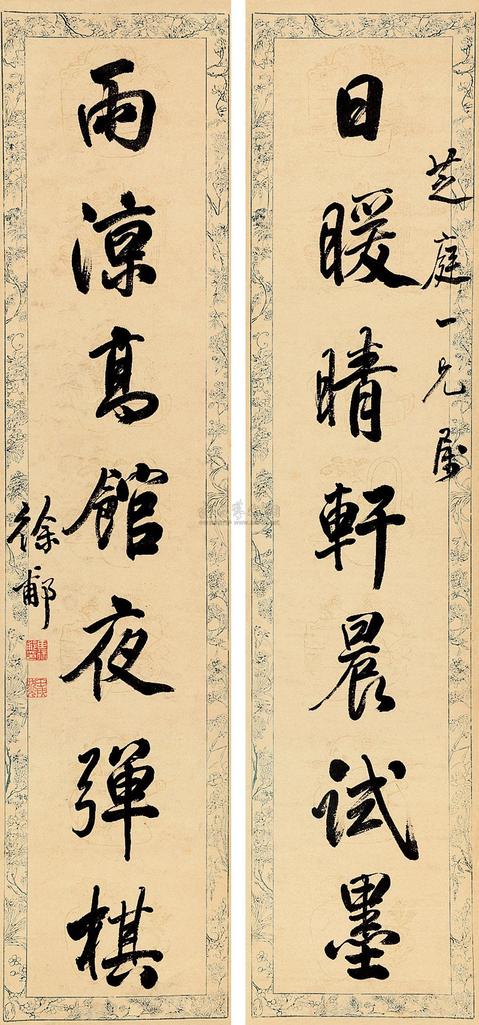 芝庭一兄属
日暖晴軒晨试墨
雨凉高館夜弹棋
徐郙